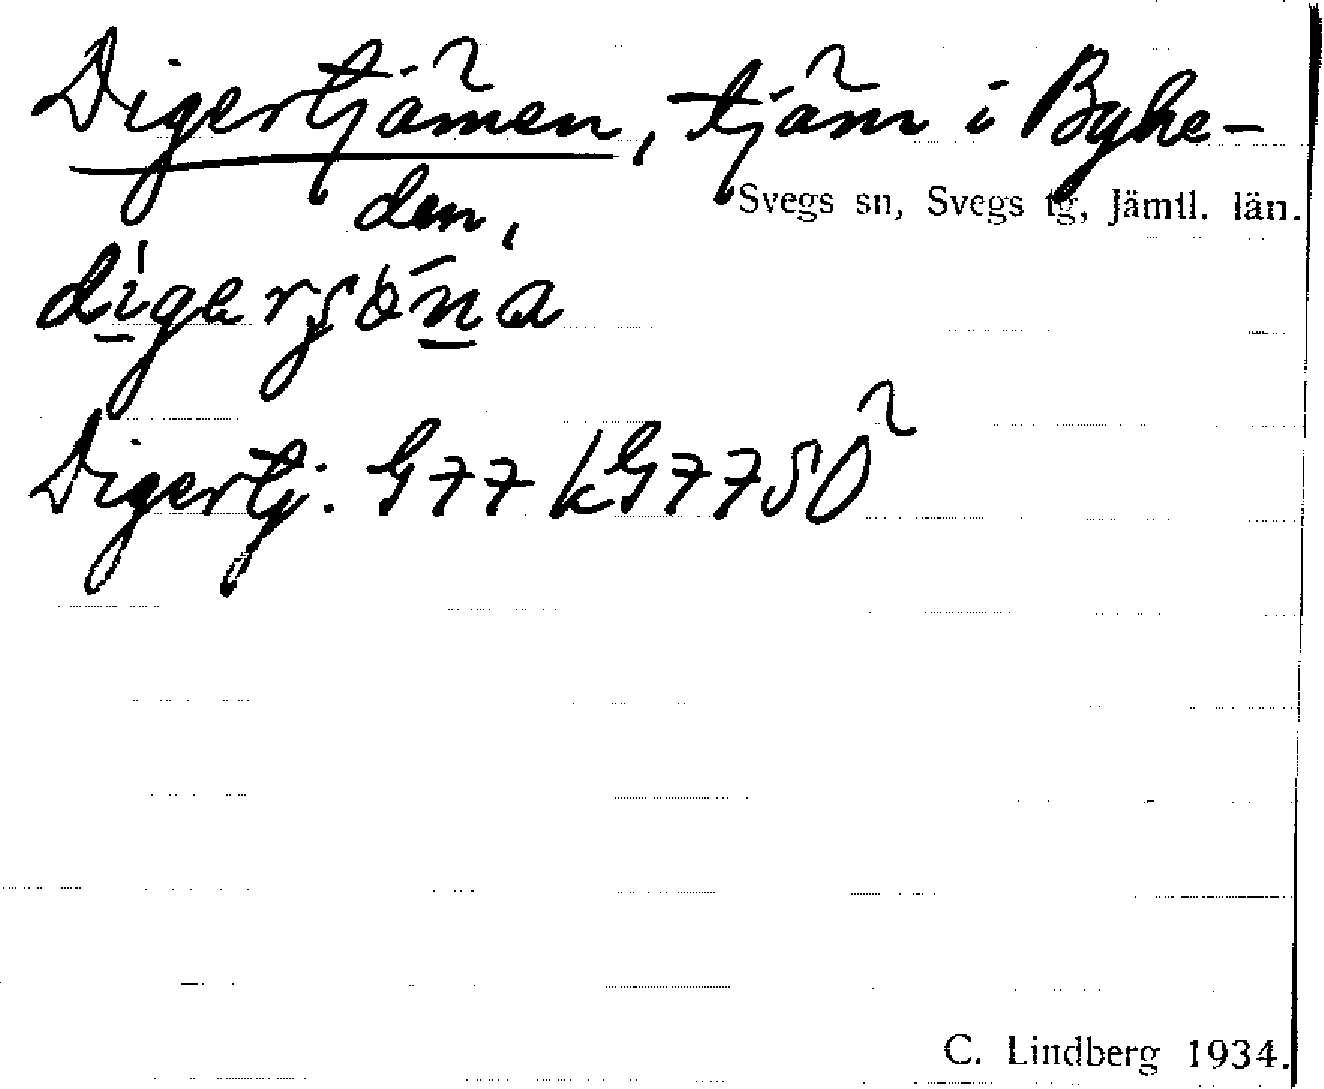 Digertjärnen, tjärn i Byhe-
den,
Svegs sn, Svegs tg, Jämtl. län.
Digertj. G 77 kG 77 SO
C. Lindberg 1934.